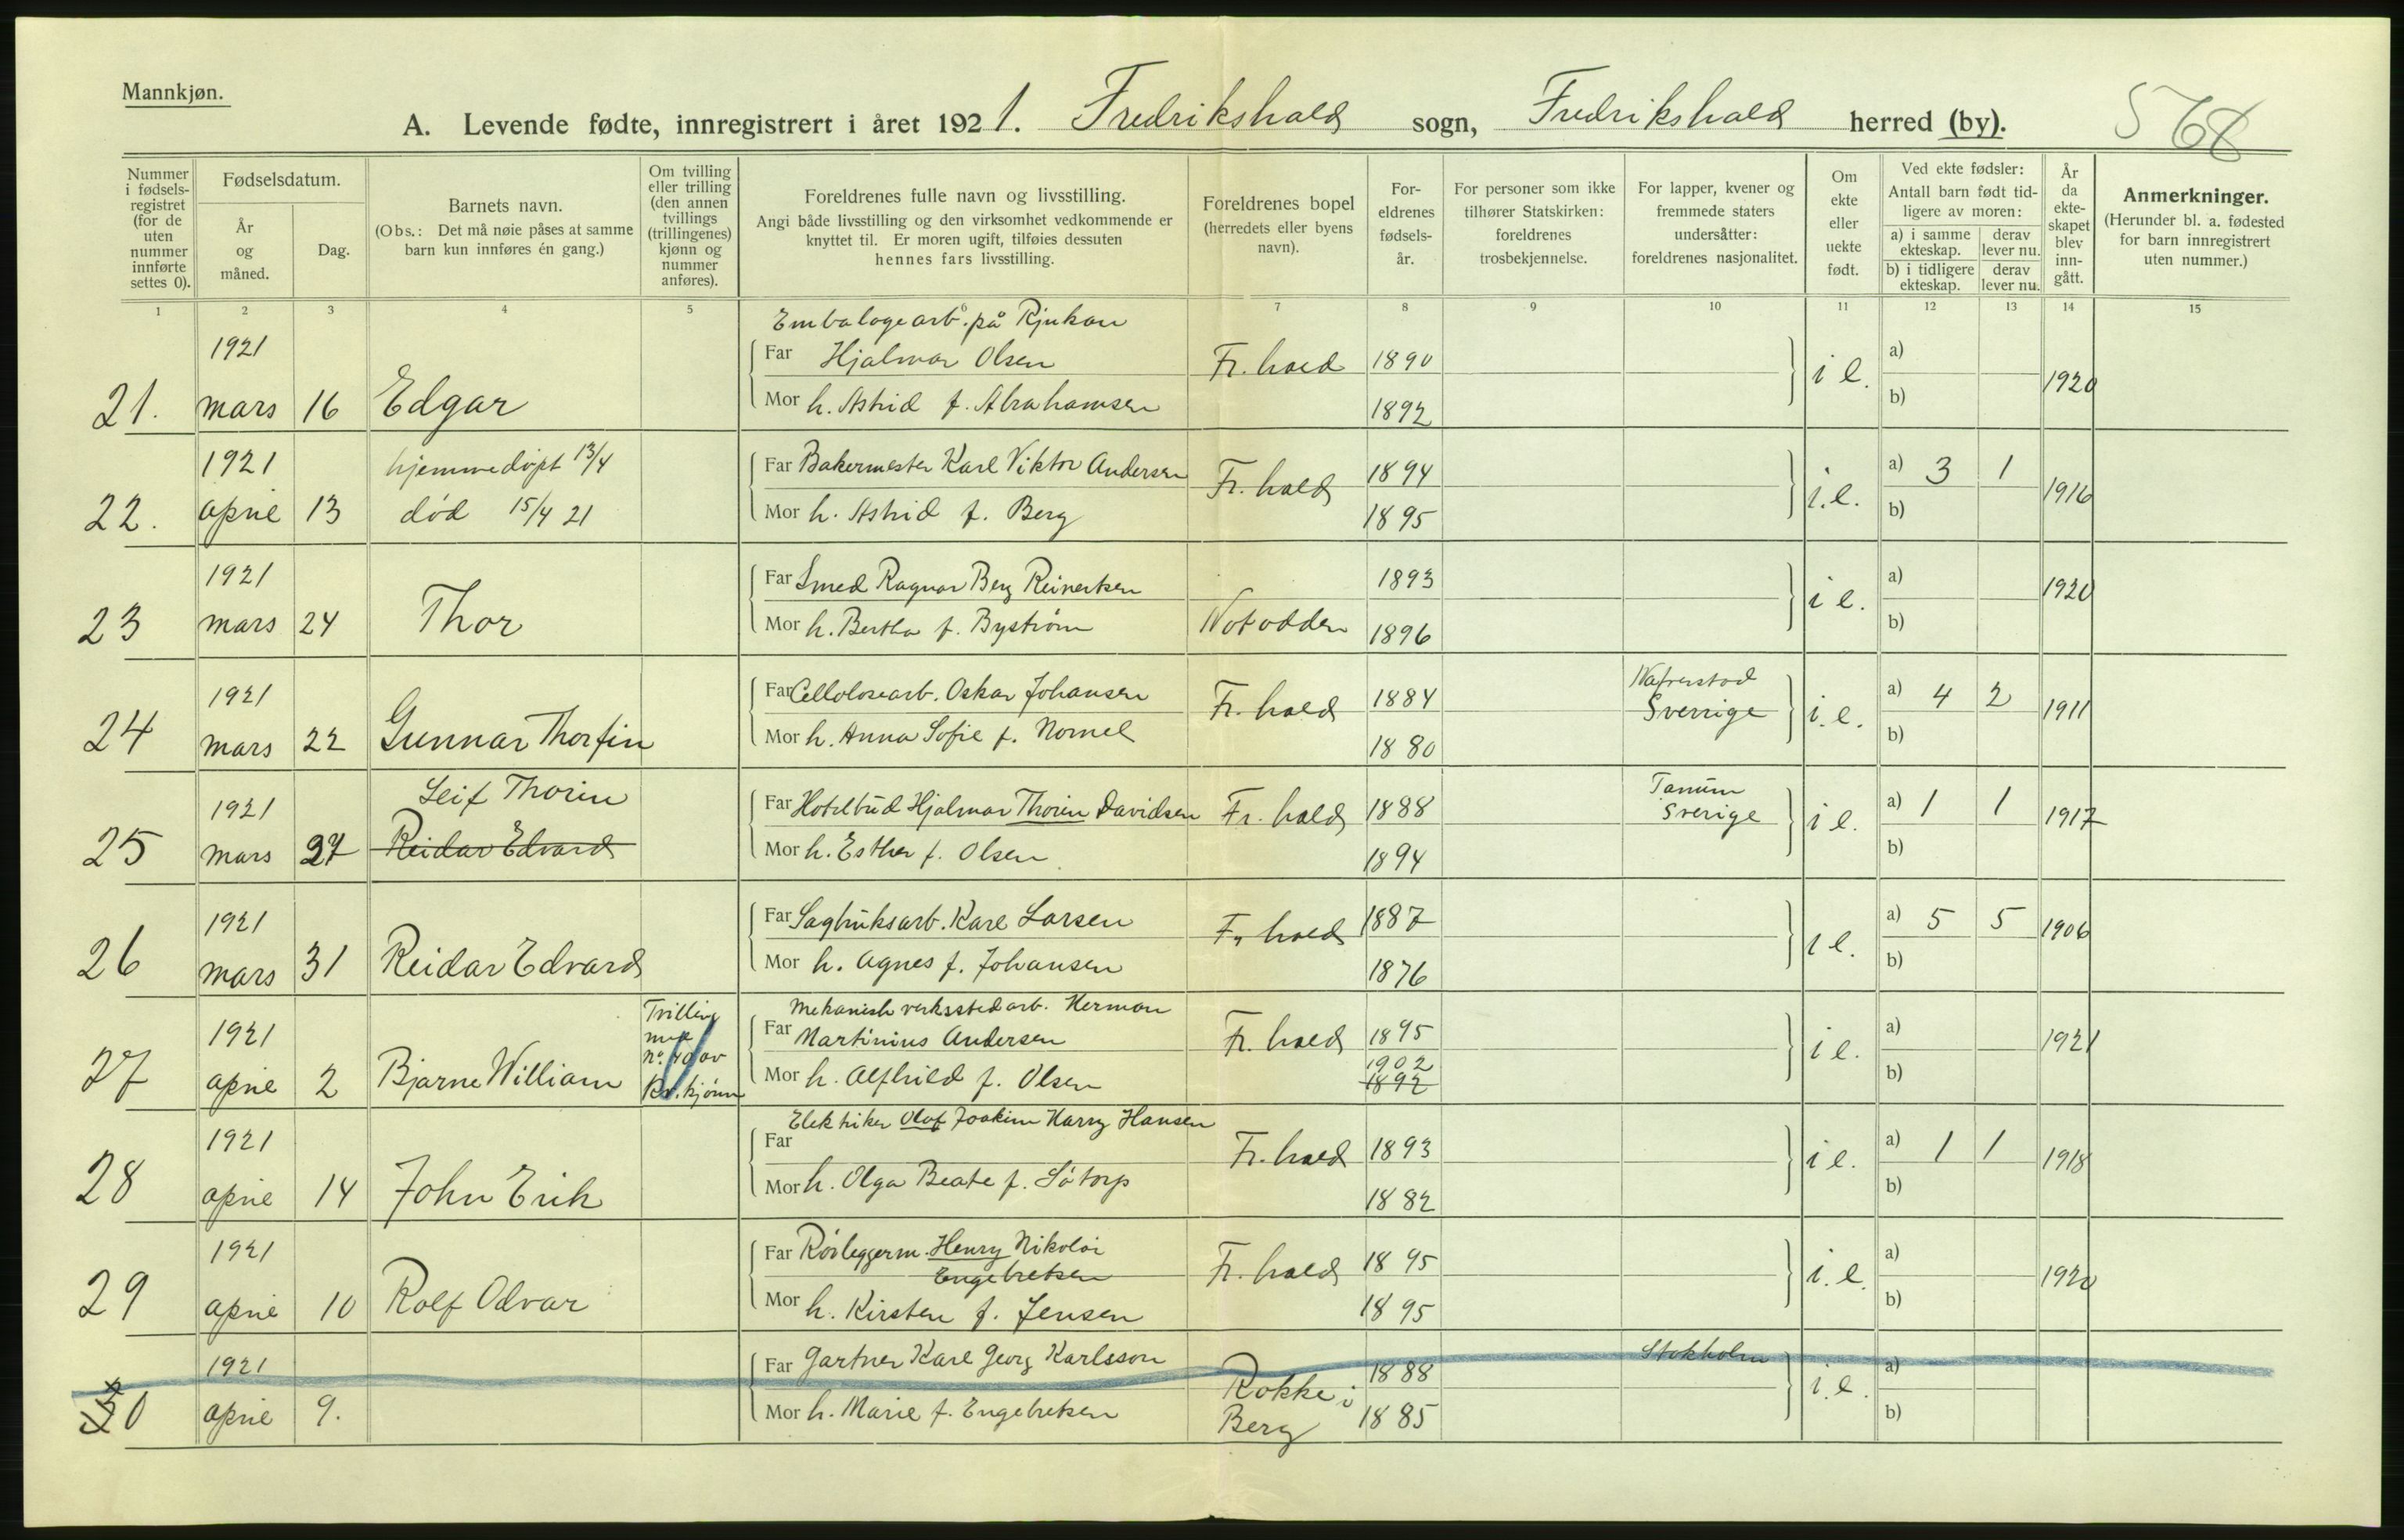 Mannkjøn.
A. Levende fødte, innregistrert i året 1921. Fredrikshald sogn, Fredrikshald herred (by). 568
Nummer i fødsels-registret (for de uten nummer innførte settes 0).
Fødselsdatum.
År og måned.
Dag.
Barnets navn.
(Obs.: Det må nøie påses at samme barn kun innføres én gang.)
Om tvilling eller trilling (den annen tvillings (trillingenes) kjønn og nummer anføres).
Foreldrenes fulle navn og livsstilling.
Angi både livsstilling og den virksomhet vedkommende er knyttet til. Er moren ugift, tilføies dessuten hennes fars livsstilling.
Foreldrenes bopel (herredets eller byens navn).
For-eldrenes fødsels-år.
For personer som ikke tilhører Statskirken: foreldrenes trosbekjennelse.
For lapper, kvener og fremmede staters undersåtter: foreldrenes nasjonalitet.
Om ekte eller uekte født.
Ved ekte fødsler: Antall barn født tid-ligere av moren:
a) i samme ekteskap. derav lever nu.
b) i tidligere ekteskap. derav lever nu.
År da ekte-skapet blev inn-gått.
Anmerkninger.
(Herunder bl. a. fødested for barn innregistrert uten nummer.)
1 2 3 4 5 6 7 8 9 10 11 12 13 14 15
Embalagearb. på Rjukan
1921 Far Hjalmar Olsen Fr.hald 1890 i e. a) 1920
21. mars 16 Edgar Mor h. Astrid f. Abrahamsen 1892 b)
1921 hjemmedøpt 13/4 Far Bakermester Karl Viktor Andersen Fr.hald 1894 i.e. a) 3 1 1916
22. april 13 død 15/4 21 Mor h. Astrid f. Berg 1895 b)
1921 Far Smed Ragnar Berg Reinertsen 1893 i e. a) 1920
23 mars 24 Thor Mor h. Bertha f. Bystrøm Notodden 1896 b)
1921 Far Cellolosearb. Oskar Johansen Fr.hald 1884 Sverrige i.e. a) 4 2 1911
24 mars 22 Gunnar Thorfin Mor h. Anna Sofie f. 1880 b)
Leif Thorin Tanum
1921 Far Hotelbud Hjalmar Thorin Davidsen Fr.hald 1888 Sverige i e. a) 1 1 1917
25 mars 27 Reidar Edvard Mor h. Esther f. Olsen 1894 b)
1921 Far Sagbruksarb. Karl Larsen Fr.hald 1887 i e. a) 5 5 1906
26 mars 31 Reidar Edvard Mor h. Agnes f. Johansen 1876 b)
Tvilling Mekanisk verkstedarb. Herman
1921 Far Martinius Andersen Fr.hald 1895 i e. a) 1921
no. 40 av 1902
27 april 2 Bjarne William kv.kjønn Mor h. Alfhild f. Olsen 1892 b)
Elektriker Olaf Joakim Harry Hansen
1921 Far Fr.hald 1893 i e. a) 1 1 1918
28 april 14 John Erik Mor h. Olga Beate f. Søtorp 1882 b)
1921 Far Rørleggerm. Henry Nikolai Fr.hald 1895 i.e. a) 1920
Engebretsen
29 april 10 Rolf Odvar Mor h. Kirsten f. Jensen 1895 b)
1921 Far Gartner Karl Georg Karlsson Rokke i 1888 Stokholm i.e. a)
30 april 9. Mor h. Marie f. Engebretsen Berg 1885 b)